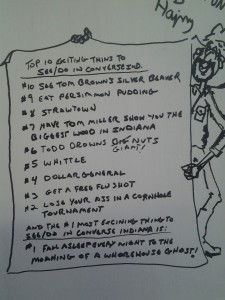 Happy
TOP 10 EXCITING THINGS TO
SEE/DO IN CONVERSE IND.
#10 SEE TOM BROWN'S SILVER BEAVER
#9 EAT PERSIMMON PUDDING
#8 STRAWTOWN
#7 HAVE TOM MILLER SHOW YOU THE
BIGGEST WOOD IN INDIANA
#6 TODD DROWNS BIG NUTS
GIANT!
#5 WHITTLE
#4 DOLLAR GENERAL
#3 GET A FREE FLU SHOT
#2 LOSE YOUR ASS IN A CORNHOLE
TOURNAMENT
AND THE #1 MOST EXCINING THING TO
SEE/DO IN CONVERSE INDIANA IS:
#1 FAM ASLEEP EVERY NIGHT TO THE
MOANING OF A WHOREHOUSE GHOST!